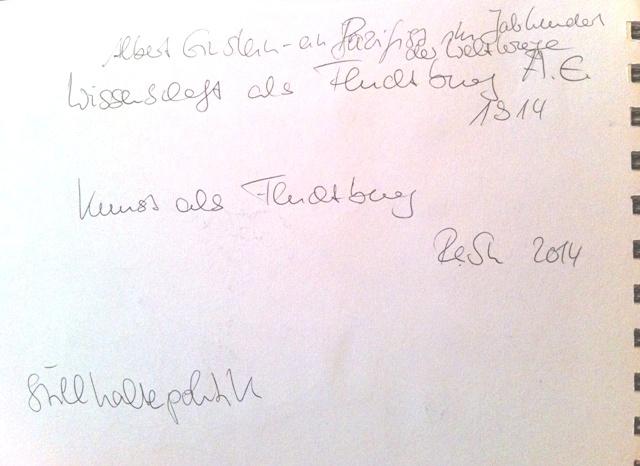 Albert Einstein - ein Pazifist im Jahrhundert
der Weltkriege
Wissenschaft als Fluchtburg A.E.
1914
Kunst als Fluchtburg
ReSch 2014
Stillhaltepolitik